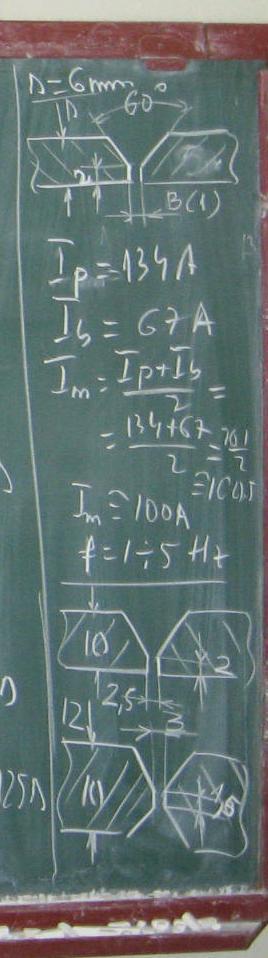 D=6mm 60°
2
B(1)
Ip = 134A
Ib = 67A
Im = Ip+Ib / 2 =
= 134+67 / 2 = 201 / 2
≅100,5
Im ≅ 100A
f = 1÷5 Hz
10
2
2,5
12
3
10